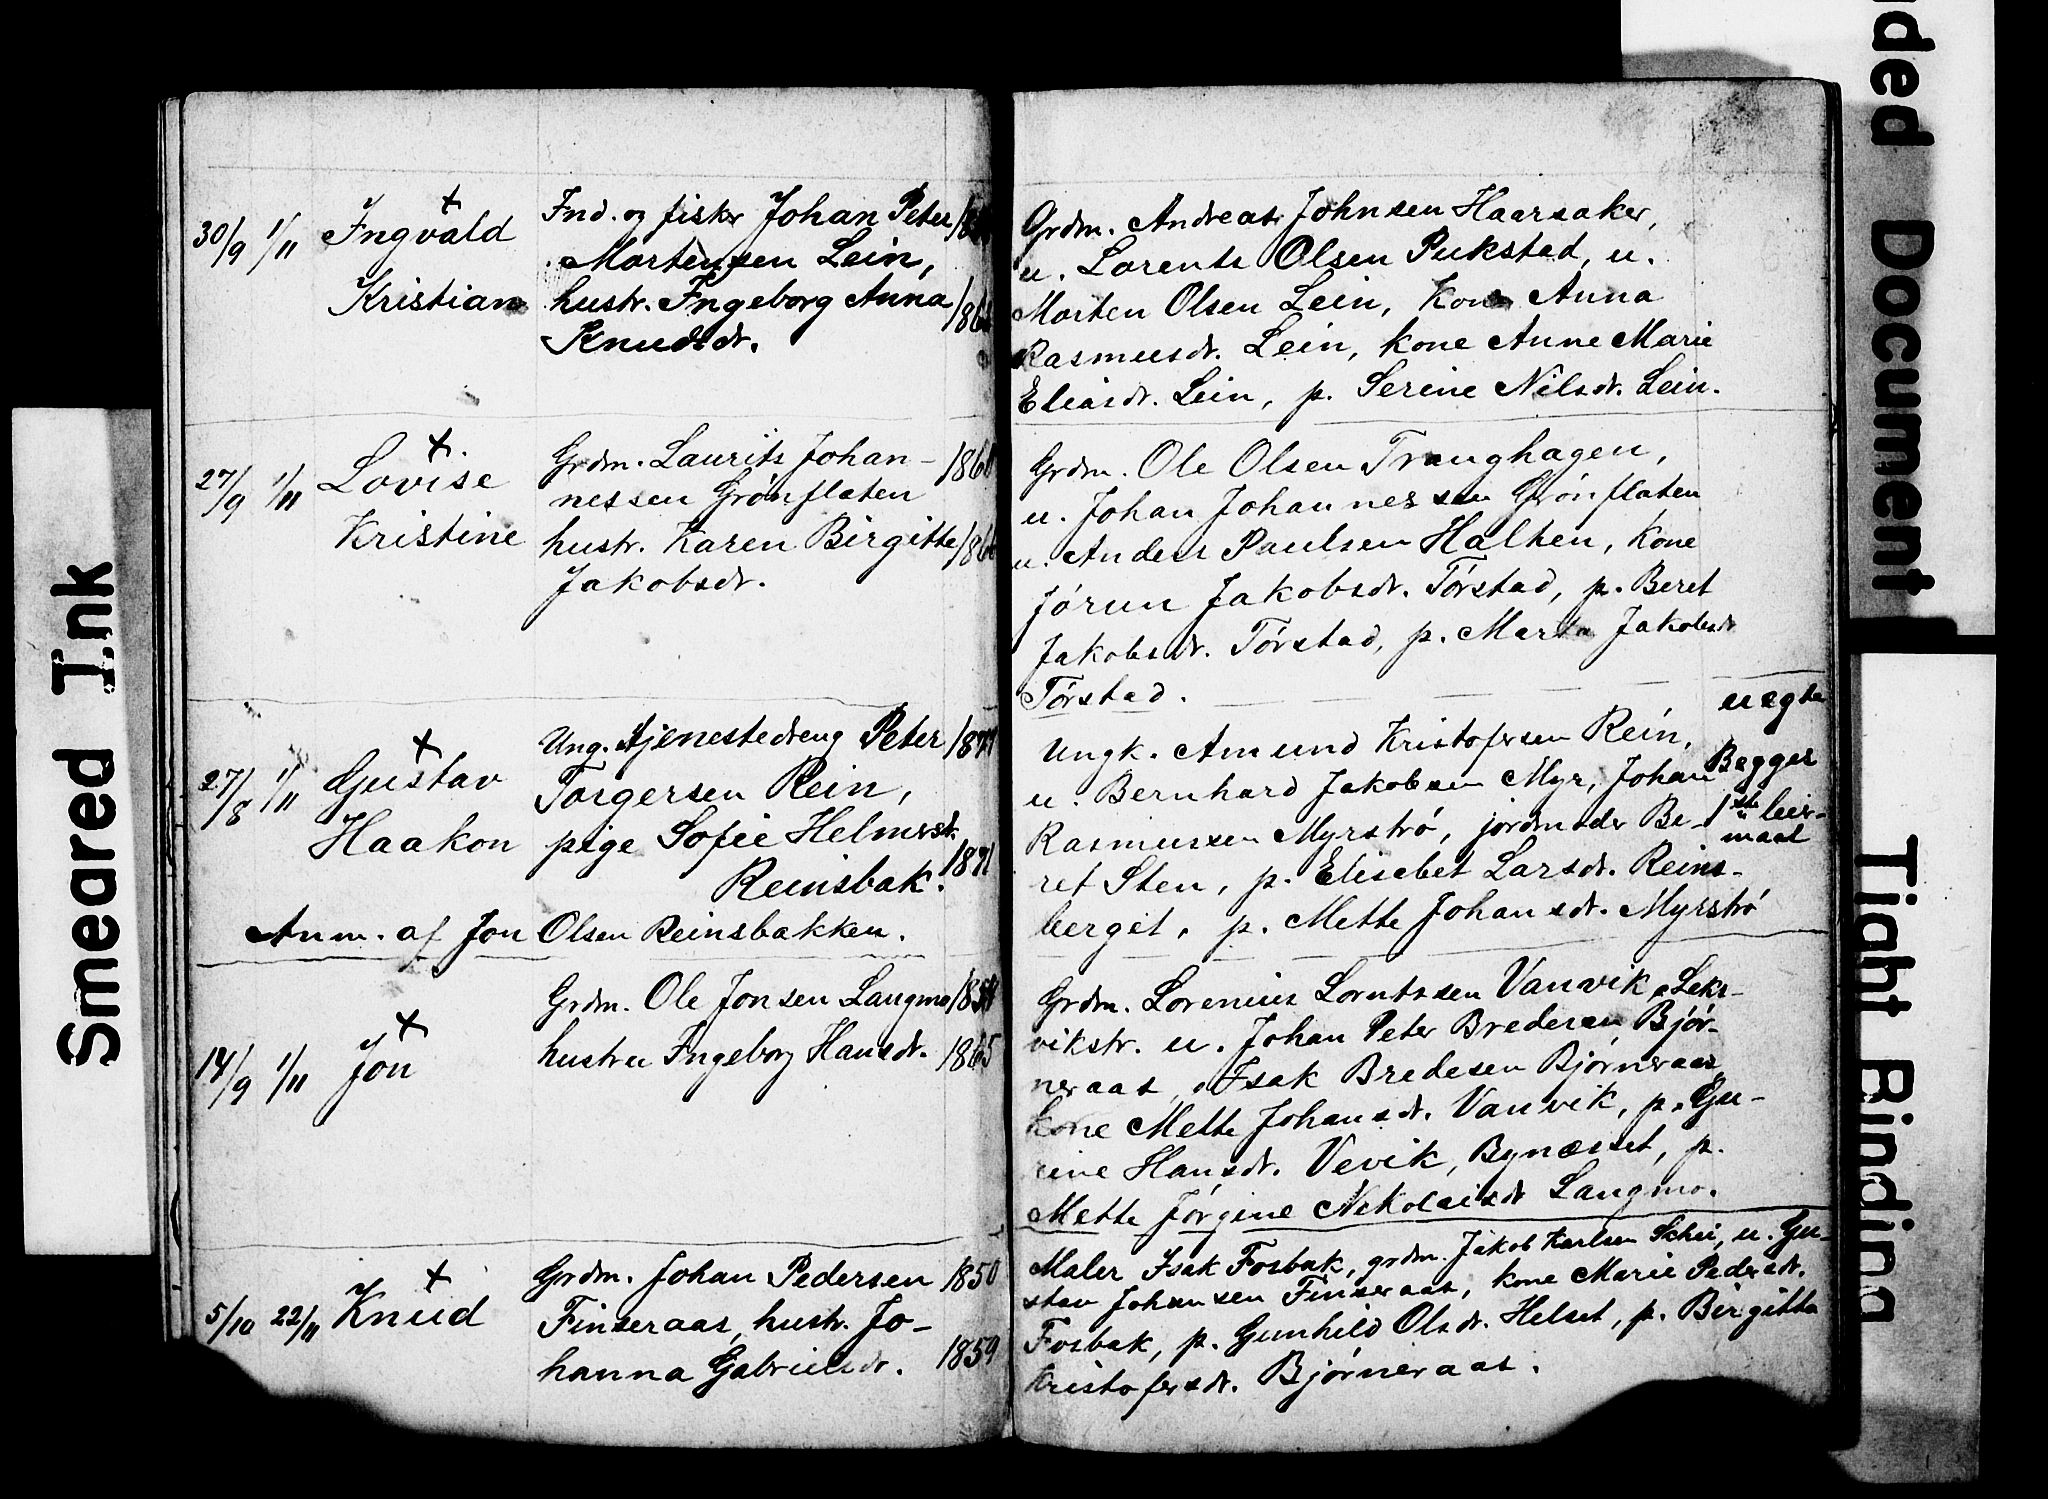 30/9 1/11 Ingvald
Kristian
Ind. og fisker Johan Peter
Mortensen Lein,
hustr. Ingeborg Anna
Knudsdr.
Grdm. Andreas Johnsen Haarsaker,
u. Lorents Olsen Pukstad, u.
Morten Olsen Lein, Kone Anna
Rasmusdr. Lein, kone Anne Marie
Eliasdr. Lein, p. Serine Nilsdr. Lein.
27/9 1/11 Lovise
Kristine
Grdm. Laurits Johan-
nessen Grønflaten
hustr. Karen Birgitte
Jakobsdr.
Grdm. Ole Olsen Tranghagen,
u. Johan Johannessen Grønflaten
u. Anders Paulsen Halten, Kone
Jørun Jakobsdr. Tørstad, p. Beret
Jakobsdr. Tørstad, p. Marta Jakobsdr
Tørstad.
27/8 1/11 Gustav
Haakon
Ung. tjenestedreng Peter
Torgersen Rein,
pige Sofie Helmersdr. 1871
Reinsbak.
Anm. af Jon Olsen Reinsbakken.
Ungk. Amund Kristofersen Rein,
u. Bernhard Jakobsen Myr, Johan
Rasmussen Myrstrø, jordmoder Be-
ret Sten, p. Elisabet Larsdr. Reins-
berget, p. Mette Johansdr. Myrstrø
uegte
Begges
1ste leier-
maal
14/9 1/11 Jon
Grdm. Ole Jonsen Langmo
hustru Ingeborg Hansdr. 1865
Grdm. Lorenius Lorntssen Vanvik, Leks-
vikstr. u. Johan Peter Bredesen Bjør-
neraas, Isak Bredesen Bjørneraas,
kone Mette Johansdr. Vanvik, p. Gu-
rine Hansdr. Vevik, Bynæsset, p.
Mette Jørgine Nikolaisdr Langmo.
5/10 22/11 Knud
Grdm. Johan Pedersen 1850
Finseraas, hustr. Jo-
hanna Gabrielsdr. 1859
Maler Isak Fosbak, grdm. Jakob Karlsen Schei, u. Gu-
stav Johansen Finseraas, kone Marie Pedersdr.
Fosbak, p. Gunhild Olsdr. Helset, p. Birgitta
Kristofersdr. Bjørneraas.
Smeared Ink
ded Document
Tight Binding